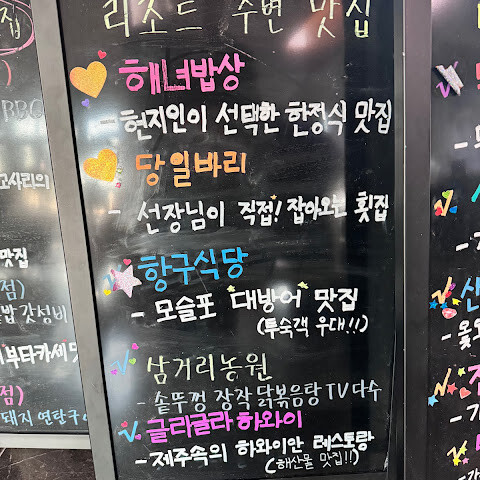 리조트 주변 맛집
해녀밥상
- 현지인이 선택한 한정식 맛집
당일바리
- 선장님이 직접! 잡아오는 횟집
항구식당
- 모슬포 "대방어" 맛집
(투숙객 우대!!)
삼거리농원
- 솥뚜껑 장작 닭볶음탕 TV다수
글라글라 하와이
- 제주속의 하와이안 레스토랑
(해산물 맛집!!)
집
BBQ
고사리의
맛집
점)
밥 갓성비
부타카세 맛
점)
돼지 연탄구